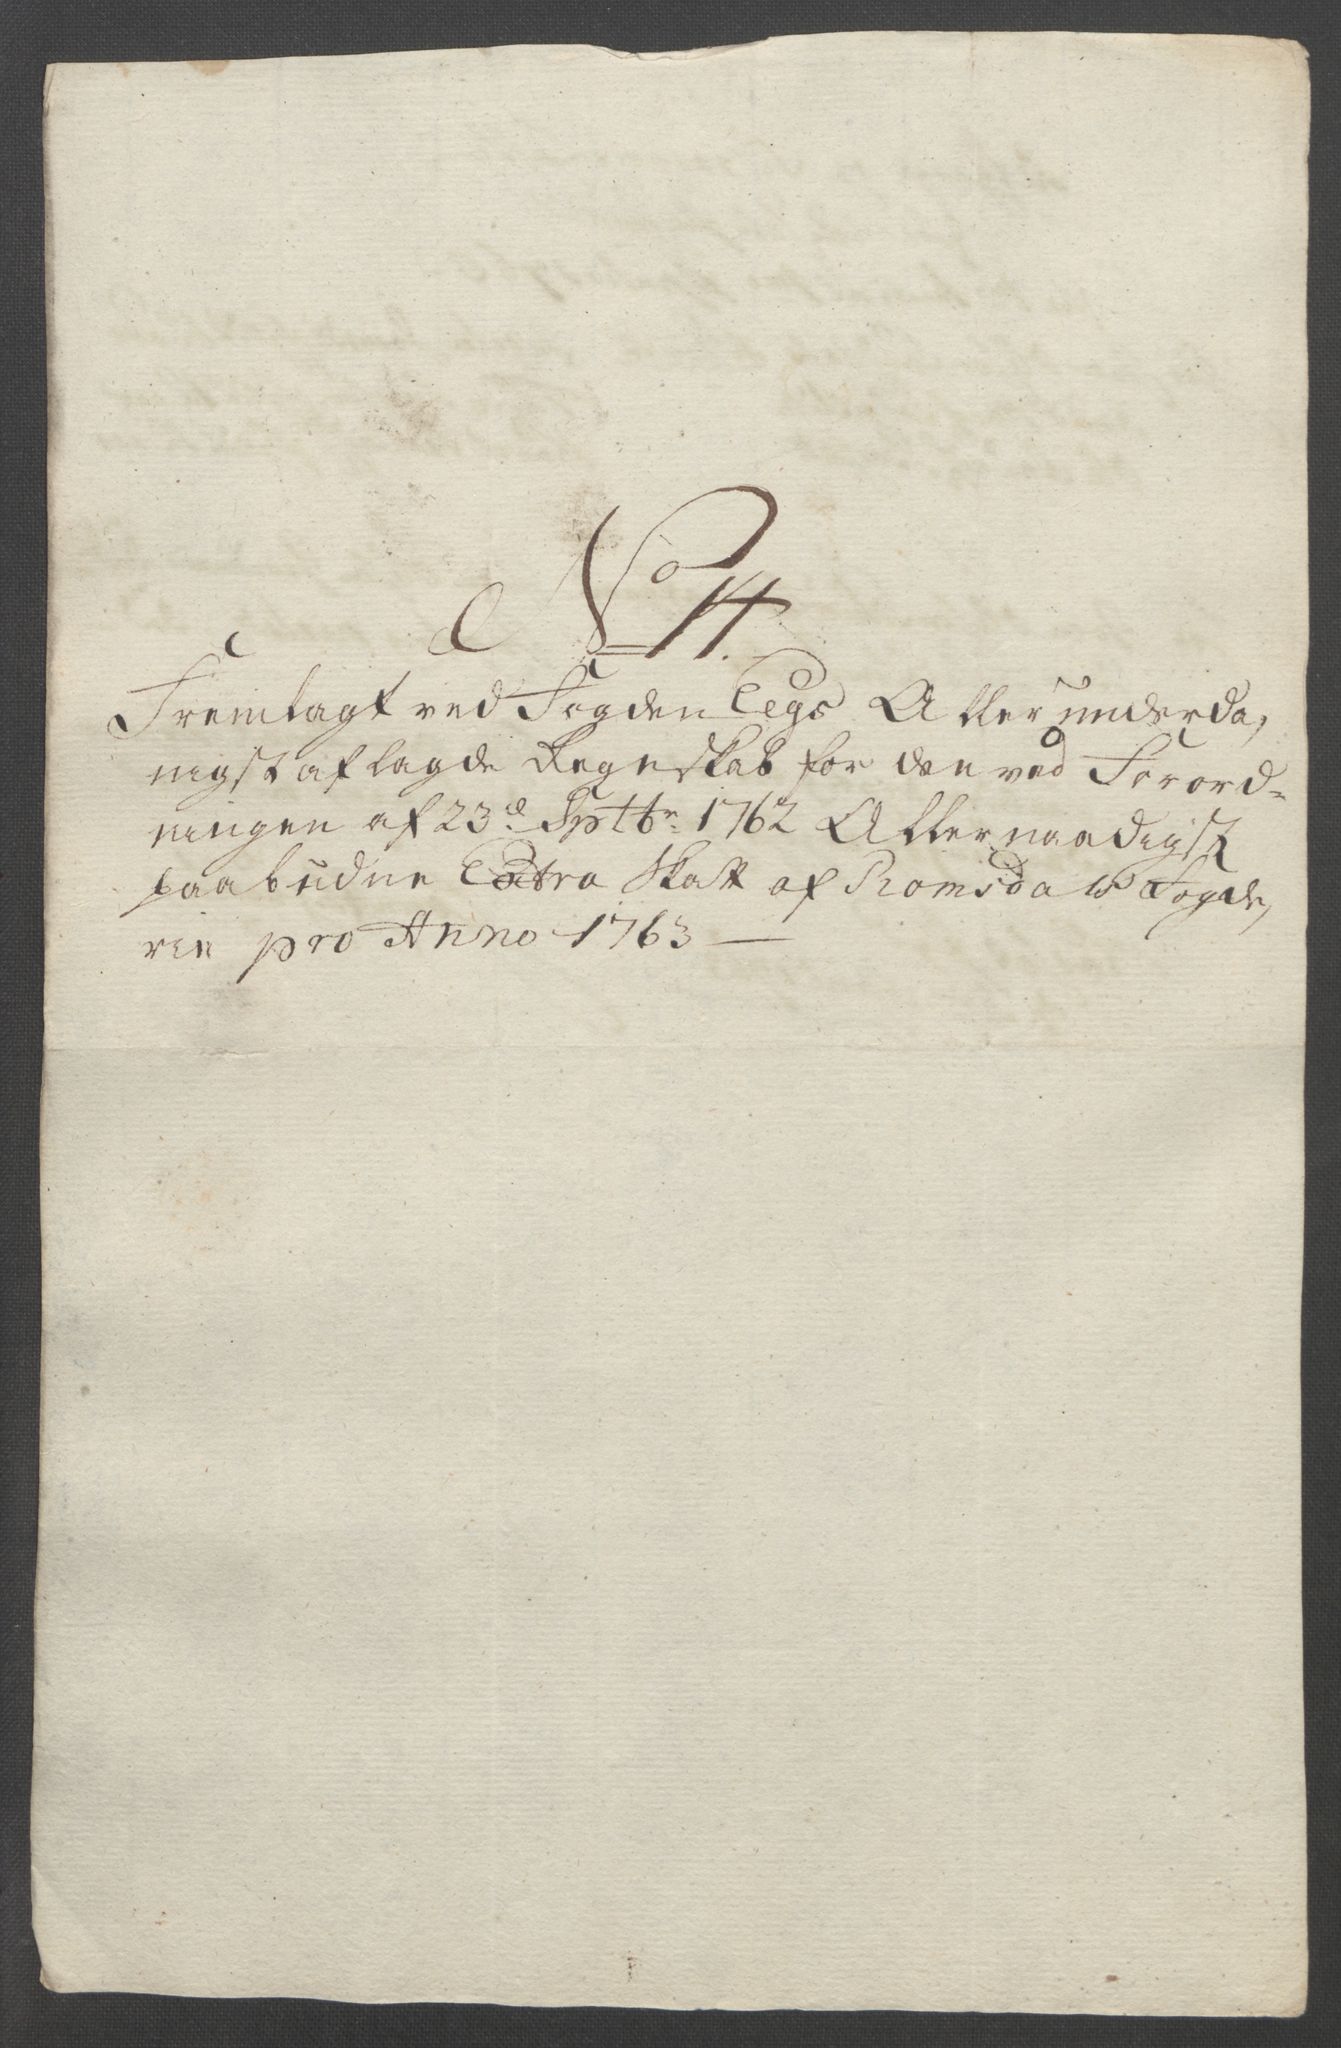 No 14.
Fremlagt ved Fogden Eegs Allerunderda,
nigst aflagde Regnskab for den ved Forord-
ningen af 23d Sptbr. 1762 Allernaadigst
paabudne Extra Skatt af Romsdals Fogde,
rie pro Anno 1763 —